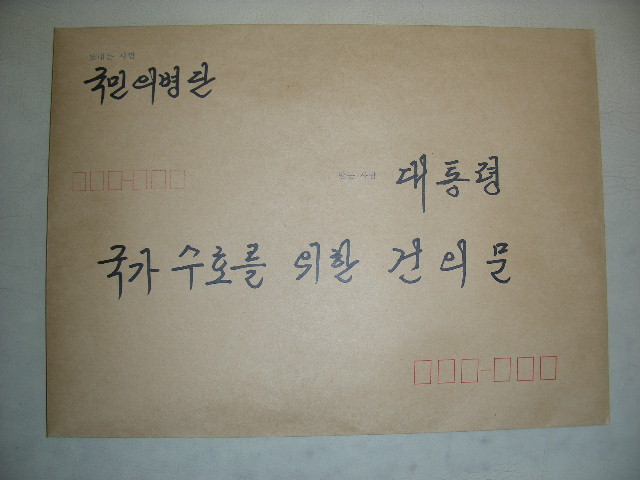 보내는 사람
국민의병단
받는 사람
대통령
국가 수호를 위한 건의문